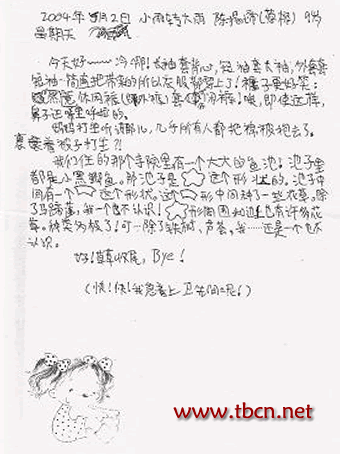 2004年5月2日 小雨转大雨 陈 9岁
星期天
今天好——冷啊!长袖套背心,短袖套长袖,外套套
短袖,简直把带来的所以衣服都穿上了!裤子更好笑:
休闲裤(外裤)套休闲裤!唉,即使这样,
鼻子还 的。
妈妈打坐听课那儿,几乎所有人都把棉被抱去了。
裹着被子打坐?!
我们住的那个寺院里有一个大大的鱼池!池子里
都是小黑 鱼。那池子是 这个形状的。池子中
间有个 这个形状。这个 形中间种了一些花草。除
了马蹄莲,我一个也不认识! 形的周围 边也有许多花
草。种类多极了!可…除了铁树、芦荟。我……还是一个也不
认识。
好!草草收尾,Bye!
(快!快!我急着上卫生间呢!)
www.tbcn.net